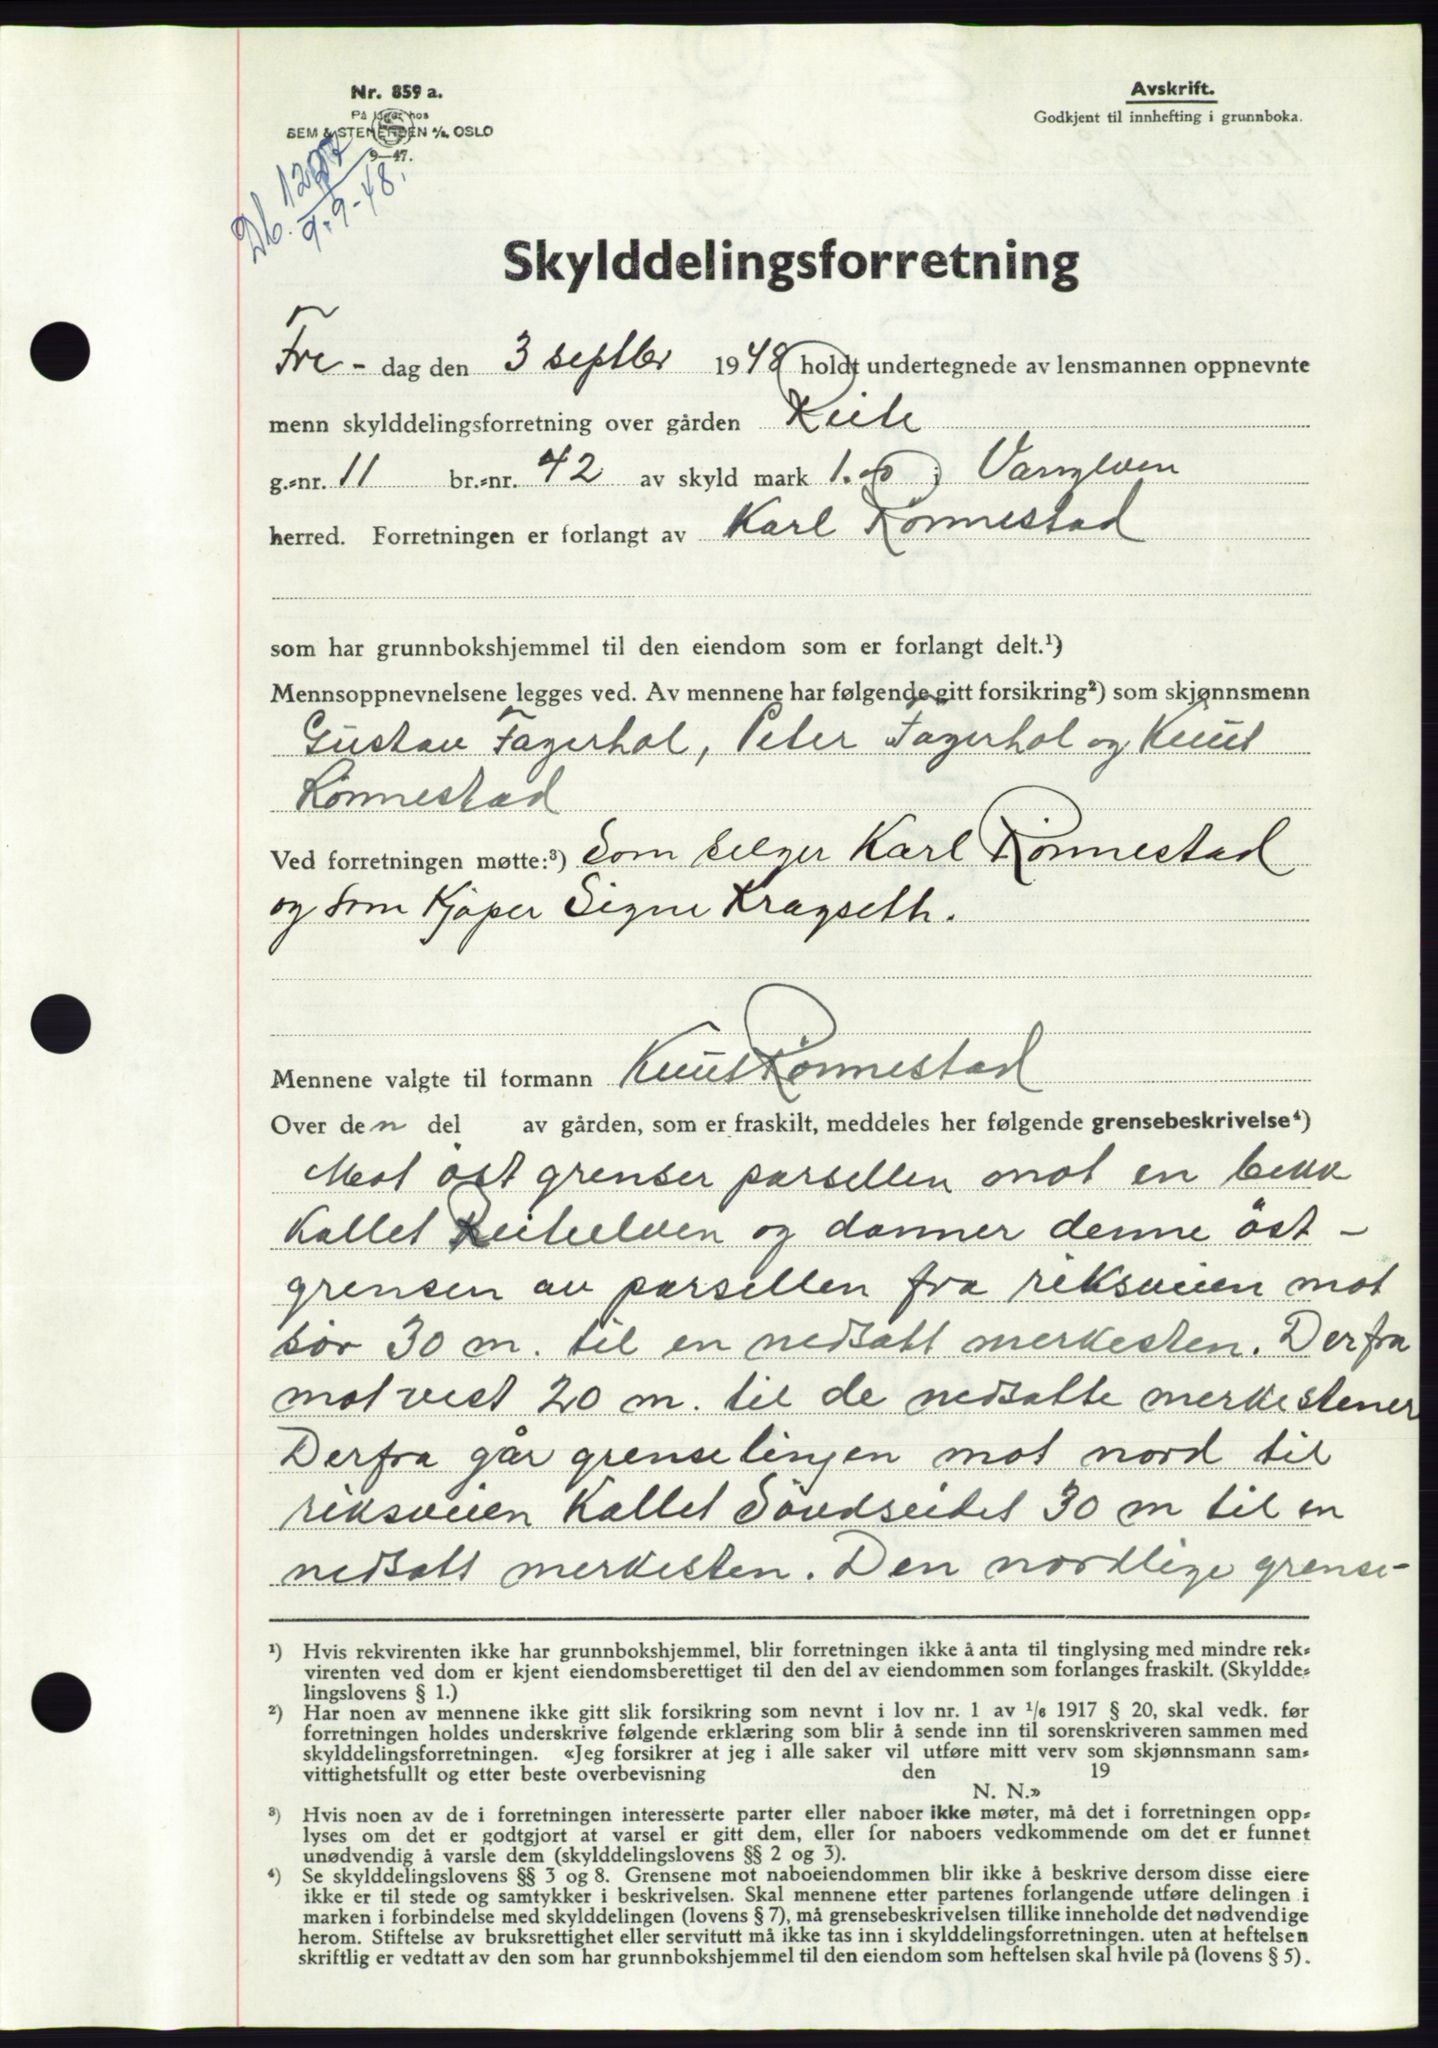 Nr. 859 a.
På lager hos
SEM & STENERSEN A/S OSLO
9—47.
Avskrift.
Godkjent til innhefting i grunnboka.
Db. 1227
9.9-48.
Skylddelingsforretning
Fre - dag den 3 septbr 1948 holdt undertegnede av lensmannen oppnevnte
menn skylddelingsforretning over gården Keite
g.=nr. 11 br.=nr. 42 av skyld mark 1.00 i Vanylven
herred. Forretningen er forlangt av Karl Rönnestad
som har grunnbokshjemmel til den eiendom som er forlangt delt.¹)
Mennsoppnevnelsene legges ved. Av mennene har følgende gitt forsikring²) som skjønnsmenn
Gustav Fagerhol, Peter Fagerhol og Knut
Rönnestad
Ved forretningen møtte:³) Som selger Karl Rönnestad
og som Kjøper Signe Kragseth.
Mennene valgte til formann Knut Rönnestad
Over den del av gården, som er fraskilt, meddeles her følgende grensebeskrivelse⁴)
Mot öst grenser parsellen mot en bekk
Kallet Keiteelven og danner denne öst -
grensen av parsellen fra riksveien mot
sör 30 m. til en nedsatt merkesten. Derfra
mot vest 20 m. til de nedsatte merkestener
Derfra går grenselinjen mot nord til
riksveien Kallet Sövdseidet 30 m til en
nedsatt merkesten. Den nordlige grense-
¹) Hvis rekvirenten ikke har grunnbokshjemmel, blir forretningen ikke å anta til tinglysing med mindre rek=
virenten ved dom er kjent eiendomsberettiget til den del av eiendommen som forlanges fraskilt. (Skyldde=
lingslovens § 1.)
²) Har noen av mennene ikke gitt slik forsikring som nevnt i lov nr. 1 av 1/6 1917 § 20, skal vedk. før
forretningen holdes underskrive følgende erklæring som blir å sende inn til sorenskriveren sammen med
skylddelingsforretningen. «Jeg forsikrer at jeg i alle saker vil utføre mitt verv som skjønnsmann sam=
vittighetsfullt og etter beste overbevisning den 19
N. N.»
³) Hvis noen av de i forretningen interesserte parter eller naboer ikke møter, må det i forretningen opp=
lyses om det er godtgjort at varsel er gitt dem, eller for naboers vedkommende om det er funnet
unødvendig å varsle dem (skylddelingslovens §§ 2 og 3).
⁴) Se skylddelingslovens §§ 3 og 8. Grensene mot naboeiendommen blir ikke å beskrive dersom disse eiere
ikke er til stede og samtykker i beskrivelsen. Skal mennene etter partenes forlangende utføre delingen i
marken i forbindelse med skylddelingen (lovens § 7), må grensebeskrivelsen tillike inneholde det nødvendige
herom. Stiftelse av bruksrettighet eller servitutt må ikke tas inn i skylddelingsforretningen. uten at heftelsen
skriftlig er vedtatt av den som har grunnbokshjemmel til den eiendom som heftelsen skal hvile på (lovens § 5).